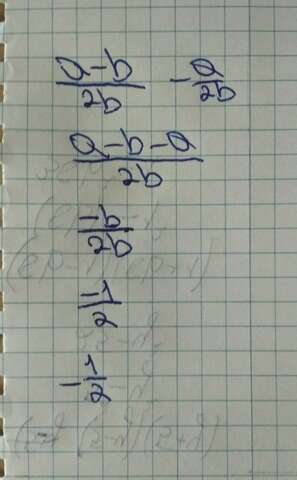 (a-b)/2b - a/2b
(a-b-a)/2b
-b/2b
-1/2
-1/2